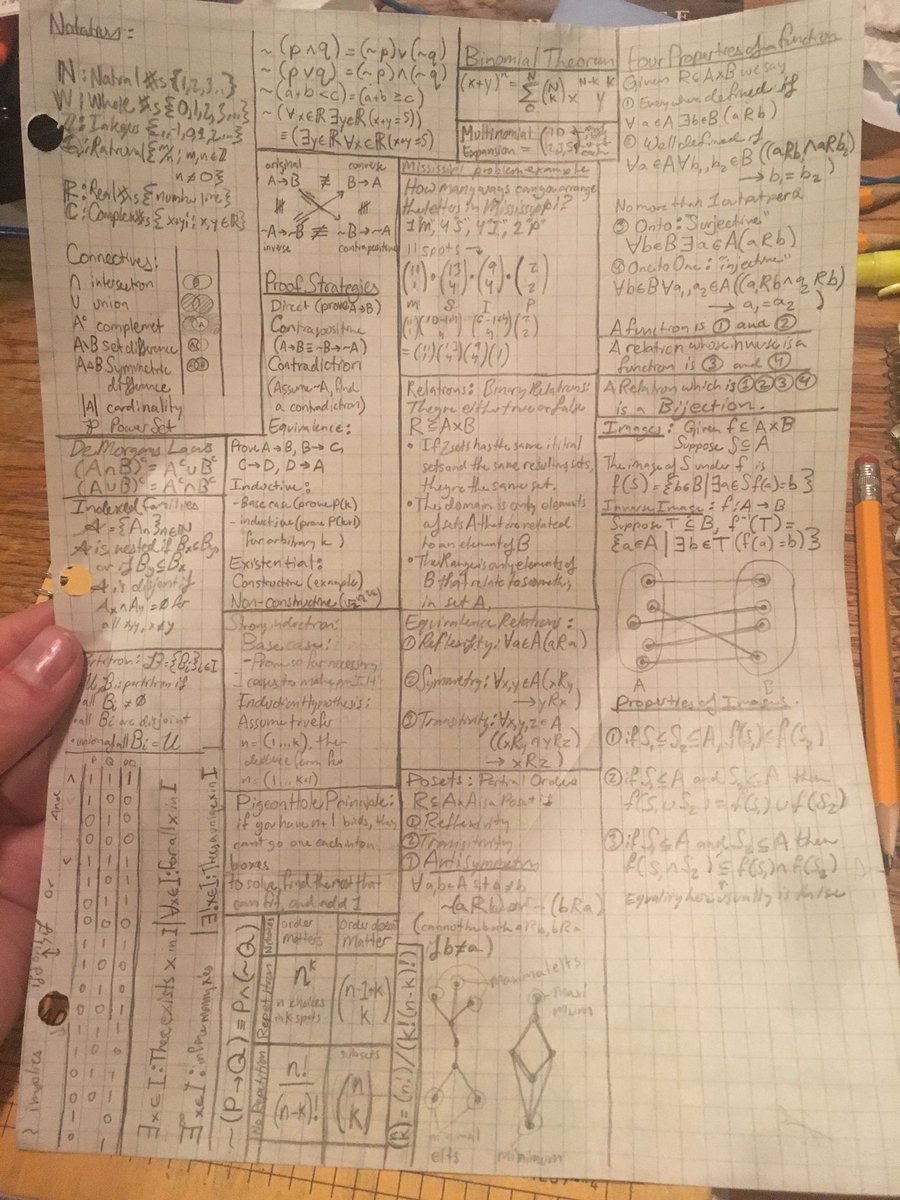 Notation:
ℕ: Natral #s {1,2,3...}
W: Whole #s {0,1,2,3,...}
ℤ: Integers {...,-1,0,1,2,...}
: Rational {m/n; m,n∈ℤ
n≠0}
ℝ: Real #s {number line}
ℂ: Complex #s {x+yi; x,y∈ℝ}
Connectives:
∩ intersection
∪ union
Aᶜ complemet
A\B set difference
A△B Symmetric
difference
|A| cardinality
Power Set
DeMorgans Laws
(A∩B)ᶜ = Aᶜ∪Bᶜ
(A∪B)ᶜ = Aᶜ∩Bᶜ
Indexed Families
A = {An}n∈ℕ
A is nested if Bx⊆By,
or if By⊆Bx
A is disjoint if
Ax∩Ay=∅ for
all x,y, x≠y
Partition: B={Bi}i∈I
U, B is partition if
all Bi ≠ ∅
all Bi are disjoint
union of all Bi = U
~(p∧q) = (~p)∨(~q)
~(p∨q) = (~p)∧(~q)
~(a+b<c) = (a+b≥c)
~(∀x∈ℝ ∃y∈ℝ (x+y=5))
≡ (∃y∈ℝ ∀x∈ℝ (x+y=5))
original converse
A→B ≢ B→A
~A→~B ≢ ~B→~A
inverse contrapositive
Proof Strategies
Direct (prove A→B)
Contrapositive
(A→B ≡ ~B→~A)
Contradiction
(Assume ~A, find
a contradiction)
Equivalence:
Prove A→B, B→C,
C→D, D→A
Inductive:
- Base case (prove P(k))
- inductive (prove P(k+1)
for arbitrary k)
Existential:
Constructive (example)
Non-constructive
Strong induction:
Base case:
- Prove so far necessary
cases to make an I.H.
Induction Hypothesis:
Assume true for
n = (1...k), then
deduce form for
n = (1...k+1)
Pigeon Hole Principale:
if you have n+1 birds, they
cant go one each into n
boxes
to solve, find the most that
can fit, and add 1
Binomial Theorem
(x+y)ⁿ = Σ (N k) x^N-k y^k
Multinomial
Expansion =
Mississipi problem example
How many ways can you arrange
the letters in Mississippi?
1"M", 4"S", 4"I", 2"P"
11 spots
(11 1)·(13 4)·(9 4)·(2 2)
M S I P
Relations: Binary Relations:
Theyre either true or false
R⊆A×B
• If 2 sets has the same initial
sets and the same resulting sets,
theyre the same set.
• The domain is only elements
of sets A that are related
to an element of B
• The Range is only elements of
B that relate to something
in set A.
Equivalence Relations:
① Reflexifity: ∀a∈A(aRa)
② Symmetry: ∀x,y∈A(xRy
→yRx)
③ Transitivity: ∀x,y,z∈A
((xRy∧yRz)
→xRz)
Posets: Partial Orders
R⊆A×A is a Poset if
① Reflexivity
② Transitivity
③ Antisymmetry
∀a,b∈A st a≠b
~(aRb) or ~(bRa)
(cannot be both aRb, bRa
if b≠a)
maximal elts
minimal
elts
maximum
minimum
Four Properties of a function
Given R⊆A×B we say
① Everywhere defined if
∀a∈A ∃b∈B (aRb)
② Well defined if
∀a∈A ∀b₁,b₂∈B ((aRb₁∧aRb₂)
→ b₁=b₂)
No more than 1 output per a
③ Onto: "Surjective"
∀b∈B ∃a∈A(aRb)
④ One to One: "injective"
∀b∈B ∀a₁,a₂∈A((a₁Rb∧a₂Rb)
→ a₁=a₂)
A function is ① and ②
A relation whose inverse is a
function is ③ and ④
A Relation which is ①②③④
is a Bijection.
Images: Given f⊆A×B
Suppose S⊆A
The image of S under f is
f(S)={b∈B|∃a∈S f(a)=b}
Inverse Image: f:A→B
Suppose T⊆B, f⁻¹(T)=
{a∈A | ∃b∈T (f(a)=b)}
A B
Properties of Images
① if S₁⊆S₂⊆A, f(S₁)⊆f(S₂)
② if S₁⊆A and S₂⊆A then
f(S₁∪S₂) = f(S₁)∪f(S₂)
③ if S₁⊆A and S₂⊆A then
f(S₁∩S₂) ⊆ f(S₁)∩f(S₂)
Equality here usually is false
And
or
implies
∃x∈I: There exists x in I
∀x∈I: For all x in I
~(P→Q) ≡ P∧(~Q)
order matters
Order doesn't Matter
Repetition
n choices
in k spots
(n-1+k k)
No Repetition
n!
(n-k)!
subsets
(n k)
(n k) = (n!)/(k!(n-k)!)